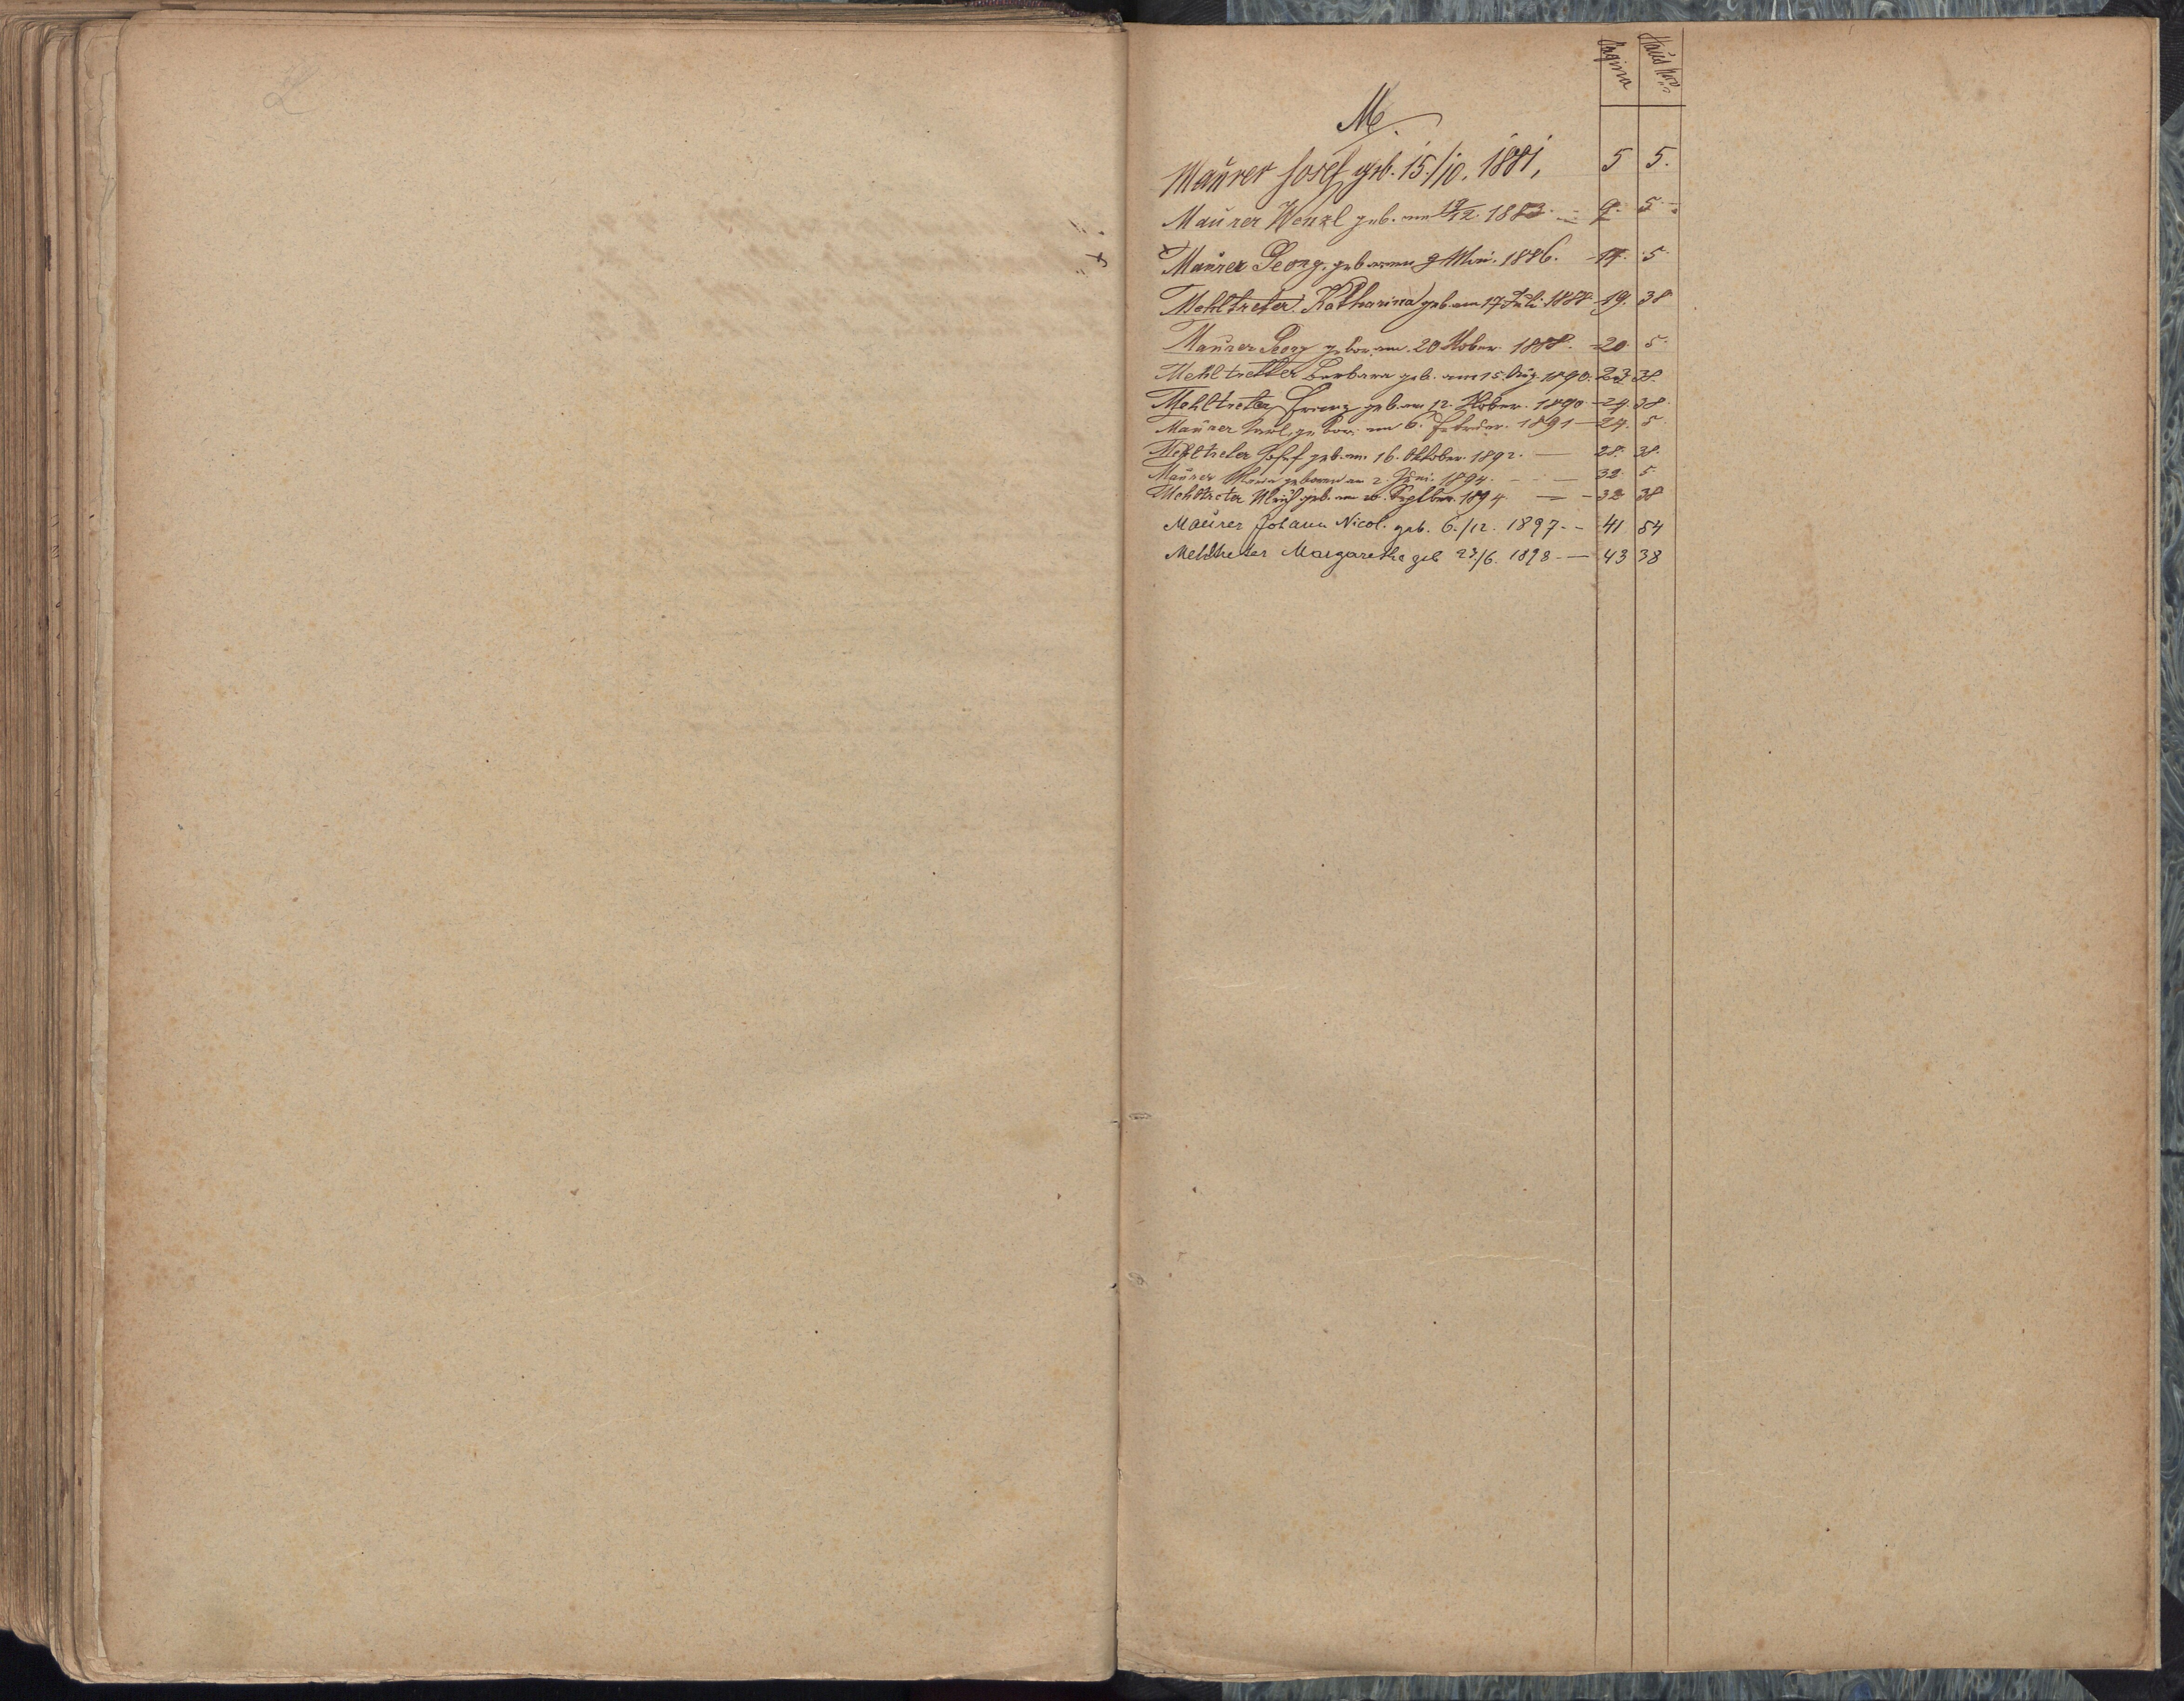 L
Pagina
Haus Nro
M.
Maurer Josef geb. 15./10. 1881, 5 5.
Maurer Wenzl geb. am 19/12. 1883 9. 5
Maurer Georg, geboren 9 Mai. 1886. 14. 5
Mehltreter Katharina geb. am 17 Juli 1888 19. 38
Maurer Georg gebor. am. 20 Nober. 1888. 20 5
Mehltretter Barbara geb. am 15. Aug. 1890. 23 38.
Mehltreter Franz geb. am 12. Nober. 1890 24. 38.
Maurer Karl, gebor. am 6. Februar. 1891 24. 5
Mehltreter Josef geb. am. 16. Oktober. 1892. 28. 38.
Maurer geboren am 2. Juni. 1894. 32. 5
Mehltreter geb. am Septber. 1894 32 38
Maurer Johann Nicol. geb. 6./12. 1897 41 54
Mehltreter Margaretha geb 23./6. 1898 43 38